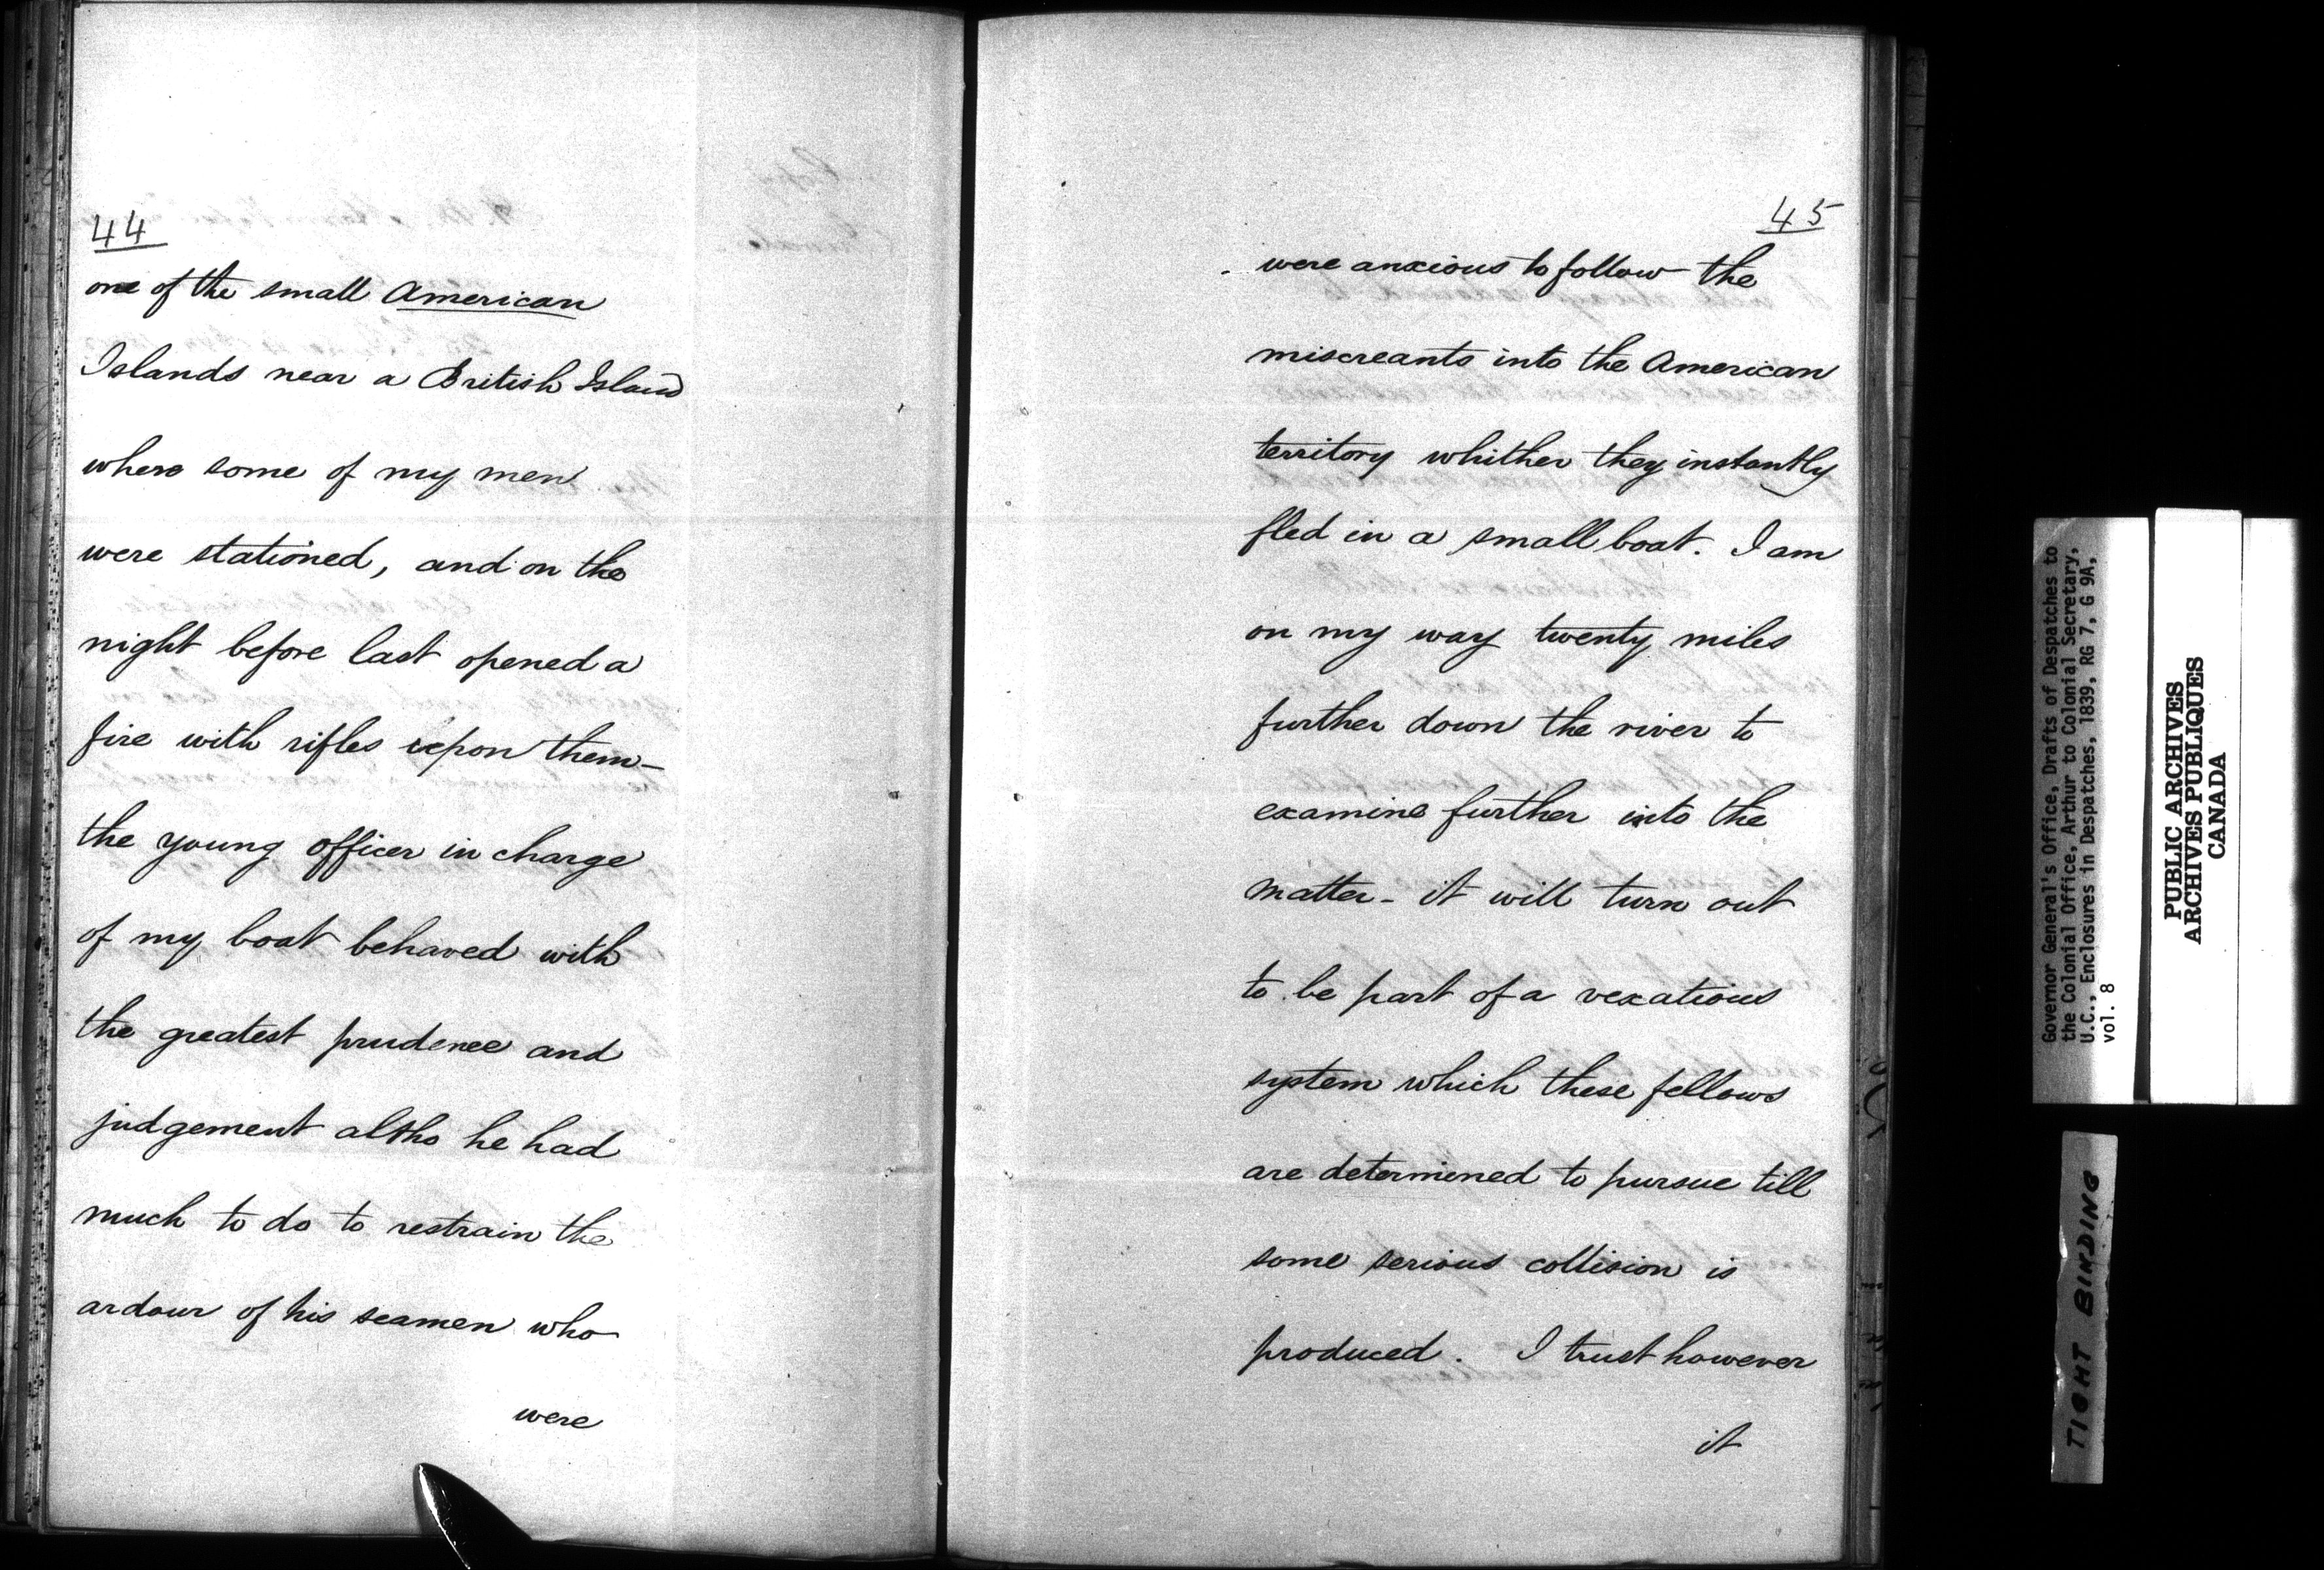 44
one of the small American
Islands near a British Island
where some of my men
were stationed, and on the
night before last opened a
fire with rifles upon them—
the young officer in charge
of my boat behaved with
the greatest prudence and
judgement altho he had
much to do to restrain the
ardour of his seamen who
were
45
were anxious to follow the
miscreants into the American
territory whither they instantly
fled in a small boat. I am
on my way twenty miles
further down the river to
examine further into the
matter - it will turn out
to be part of a vexatious
system which these fellows
are determined to pursue till
some serious collision is
produced. I trust however
it
Governor General's Office, Drafts of Despatches to
the Colonial Office, Arthur to Colonial Secretary,
U.C., Enclosures in Despatches, 1839, RG 7, G 9A,
vol. 8
PUBLIC ARCHIVES
ARCHIVES PUBLIQUES
CANADA
TIGHT BINDING